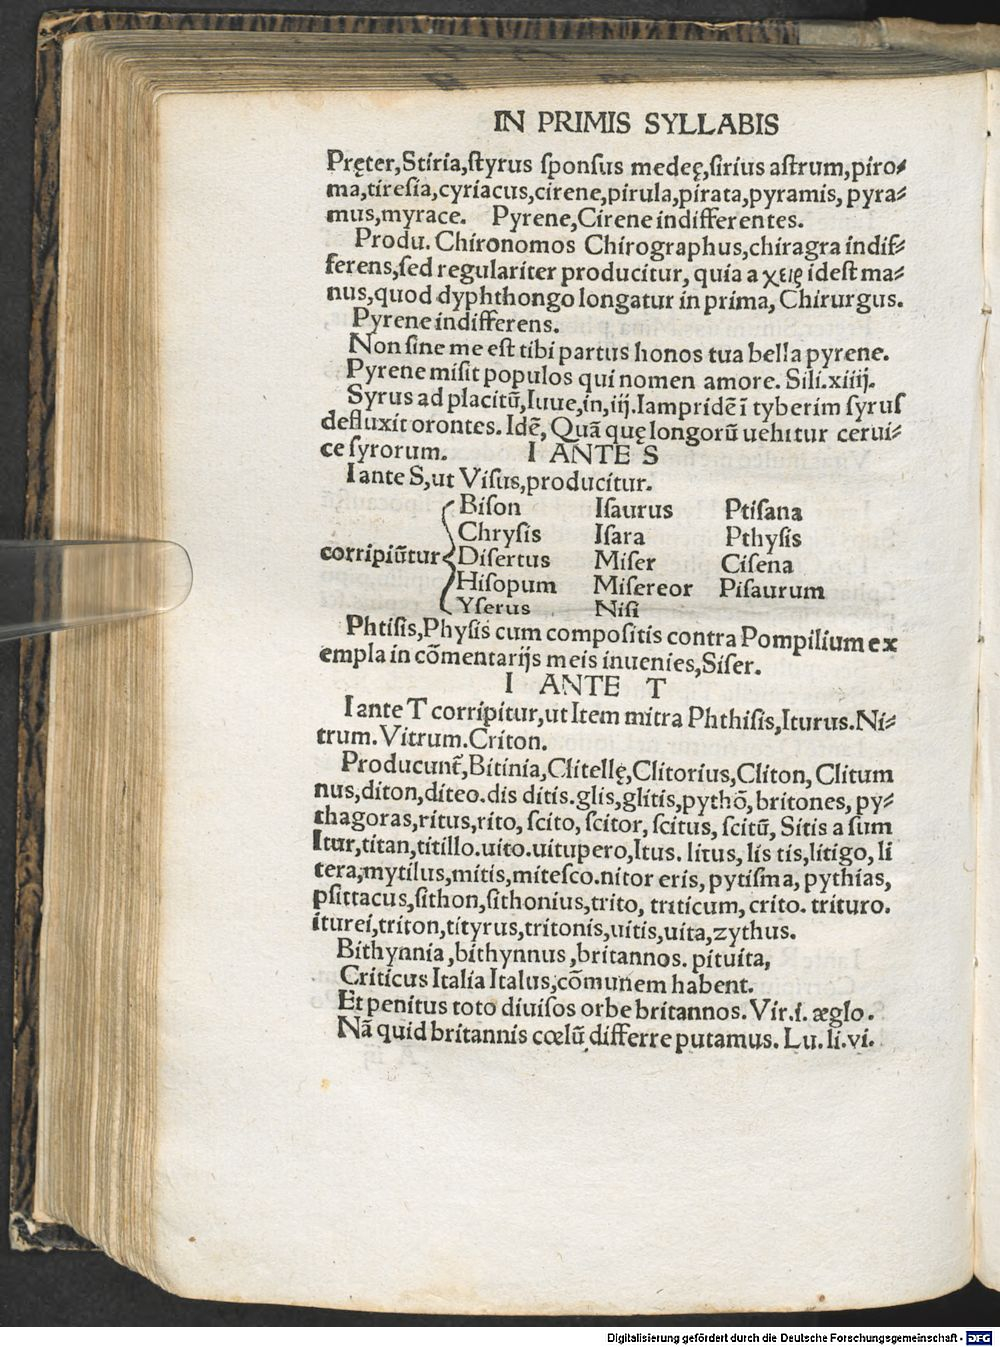 IN PRIMIS SYLLABIS
Pręter,Stiria,ſtyrus ſponſus medeę,ſirius aſtrum,piro⸗
ma,tireſia,cyriacus,cirene,pirula,pirata,pyramis, pyra⸗
mus,myrace. Pyrene,Cirene indifferentes.
Produ. Chironomos Chirographus,chiragra indif⸗
ferens,ſed regulariter producitur, quia a χειρ ideſt ma⸗
nus,quod dyphthongo longatur in prima, Chirurgus.
Pyrene indifferens.
Non ſine me eſt tibi partus honos tua bella pyrene.
Pyrene miſit populos qui nomen amore. Sili.xiiij.
Syrus ad placitū,Iuue,in,iij.Iampridē ī tyberim ſyruſ
defluxit orontes. Idē, Quā quę longorū uehitur cerui⸗
ce ſyrorum. I ANTE S
I ante S,ut Viſus,producitur.
corripiūtur
Biſon Iſaurus Ptiſana
Chryſis Iſara Pthyſis
Diſertus Miſer Ciſena
Hiſopum Miſereor Piſaurum
Yſerus Niſi
Phtiſis,Phyſis cum compoſitis contra Pompilium ex
empla in cōmentarijs meis inuenies,Siſer.
I ANTE T
I ante T corripitur,ut Item mitra Phthiſis,Iturus.Ni⸗
trum.Vitrum.Criton.
Producunt̄,Bitinia,Clitellę,Clitorius,Cliton, Clitum
nus,diton,diteo.dis ditis.glis,glitis,pythō, britones, py⸗
thagoras,ritus,rito, ſcito, ſcitor, ſcitus, ſcitū, Sitis a ſum
Itur,titan,titillo.uito.uitupero,Itus. litus, lis tis,litigo, li
tera,mytilus,mitis,miteſco.nitor eris, pytiſma, pythias,
pſittacus,ſithon,ſithonius,trito, triticum, crito. trituro.
iturei,triton,tityrus,tritonis,uitis,uita,zythus.
Bithynnia,bithynnus,britannos. pituita,
Criticus Italia Italus,cōmunem habent.
Et penitus toto diuiſos orbe britannos. Vir.i. æglo.
Nā quid britannis cœlū differre putamus. Lu. li.vi.
Digitalisierung gefördert durch die Deutsche Forschungsgemeinschaft - DFG